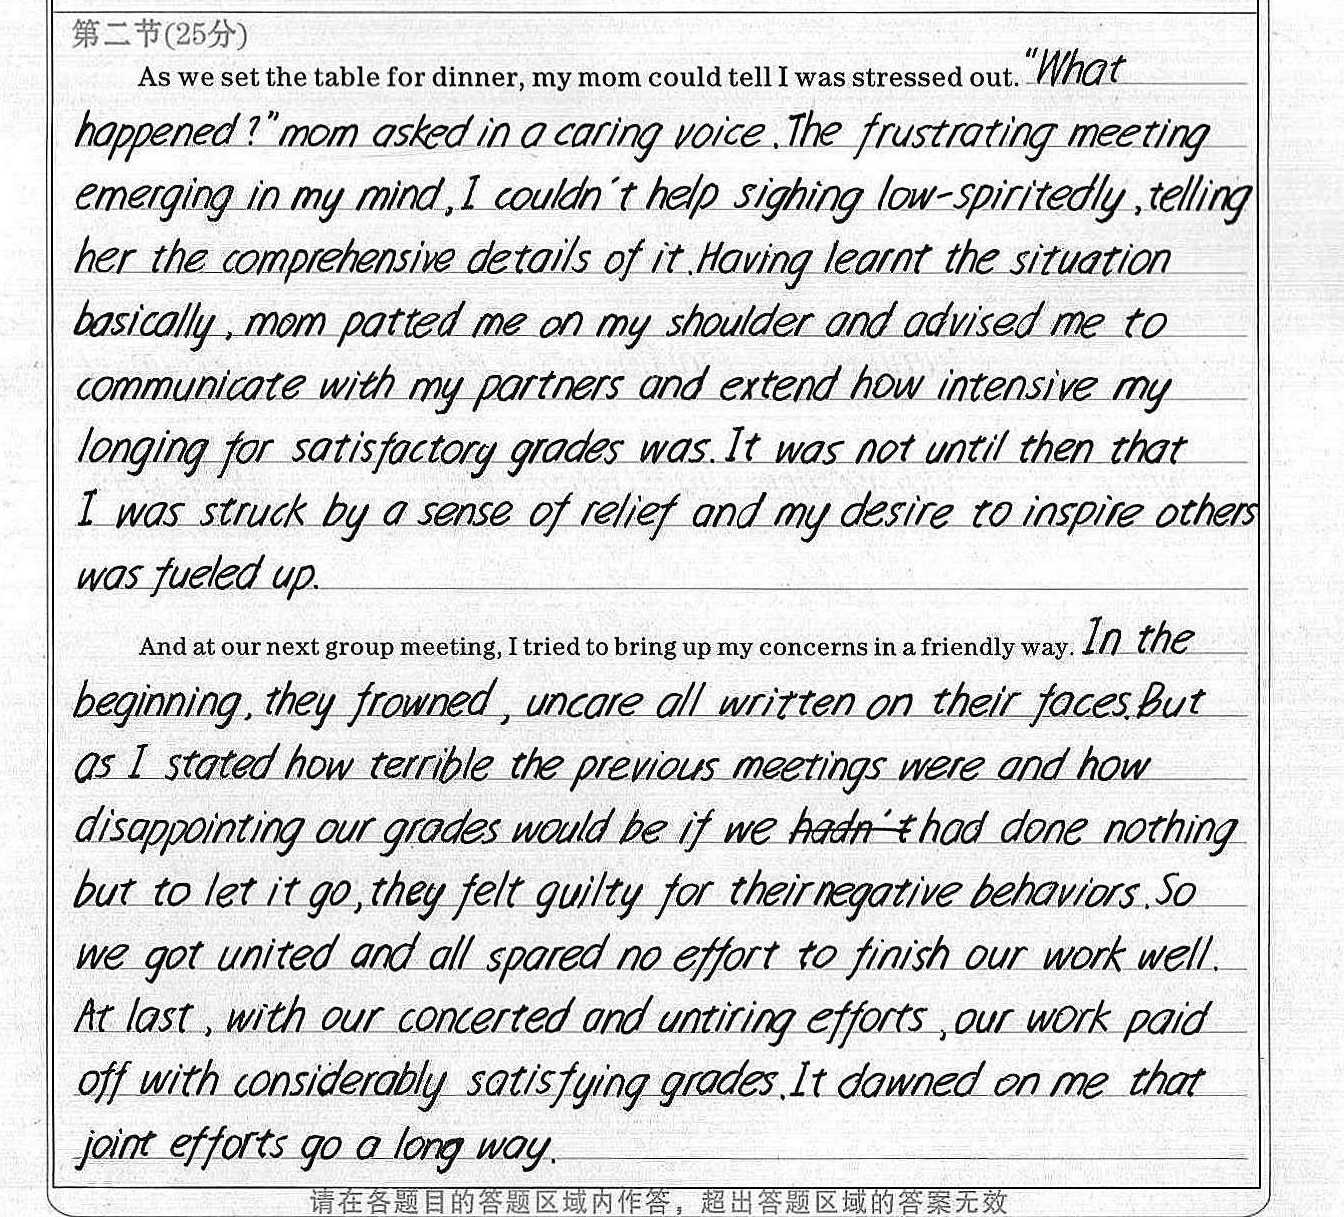 第二节(25分)
As we set the table for dinner, my mom could tell I was stressed out. "What
happened?" mom asked in a caring voice. The frustrating meeting
emerging in my mind, I couldn't help sighing low-spiritedly, telling
her the comprehensive details of it. Having learnt the situation
basically, mom patted me on my shoulder and advised me to
communicate with my partners and extend how intensive my
longing for satisfactory grades was. It was not until then that
I was struck by a sense of relief and my desire to inspire others
was fueled up.
And at our next group meeting, I tried to bring up my concerns in a friendly way. In the
beginning, they frowned, uncare all written on their faces. But
as I stated how terrible the previous meetings were and how
disappointing our grades would be if we hadn't had done nothing
but to let it go, they felt guilty for their negative behaviors. So
we got united and all spared no effort to finish our work well.
At last, with our concerted and untiring efforts, our work paid
off with considerably satisfying grades. It dawned on me that
joint efforts go a long way.
请在各题目的答题区域内作答，超出答题区域的答案无效